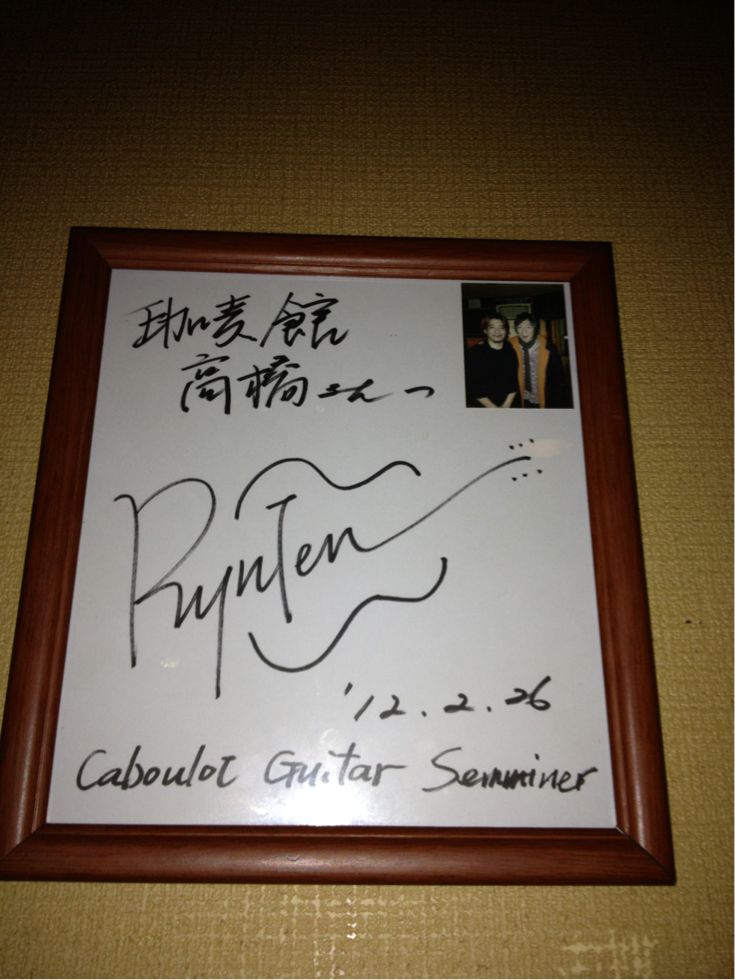 珈麦館
高橋さんへ
RynTen
'12.2.26
Caboulot Guitar Semminer